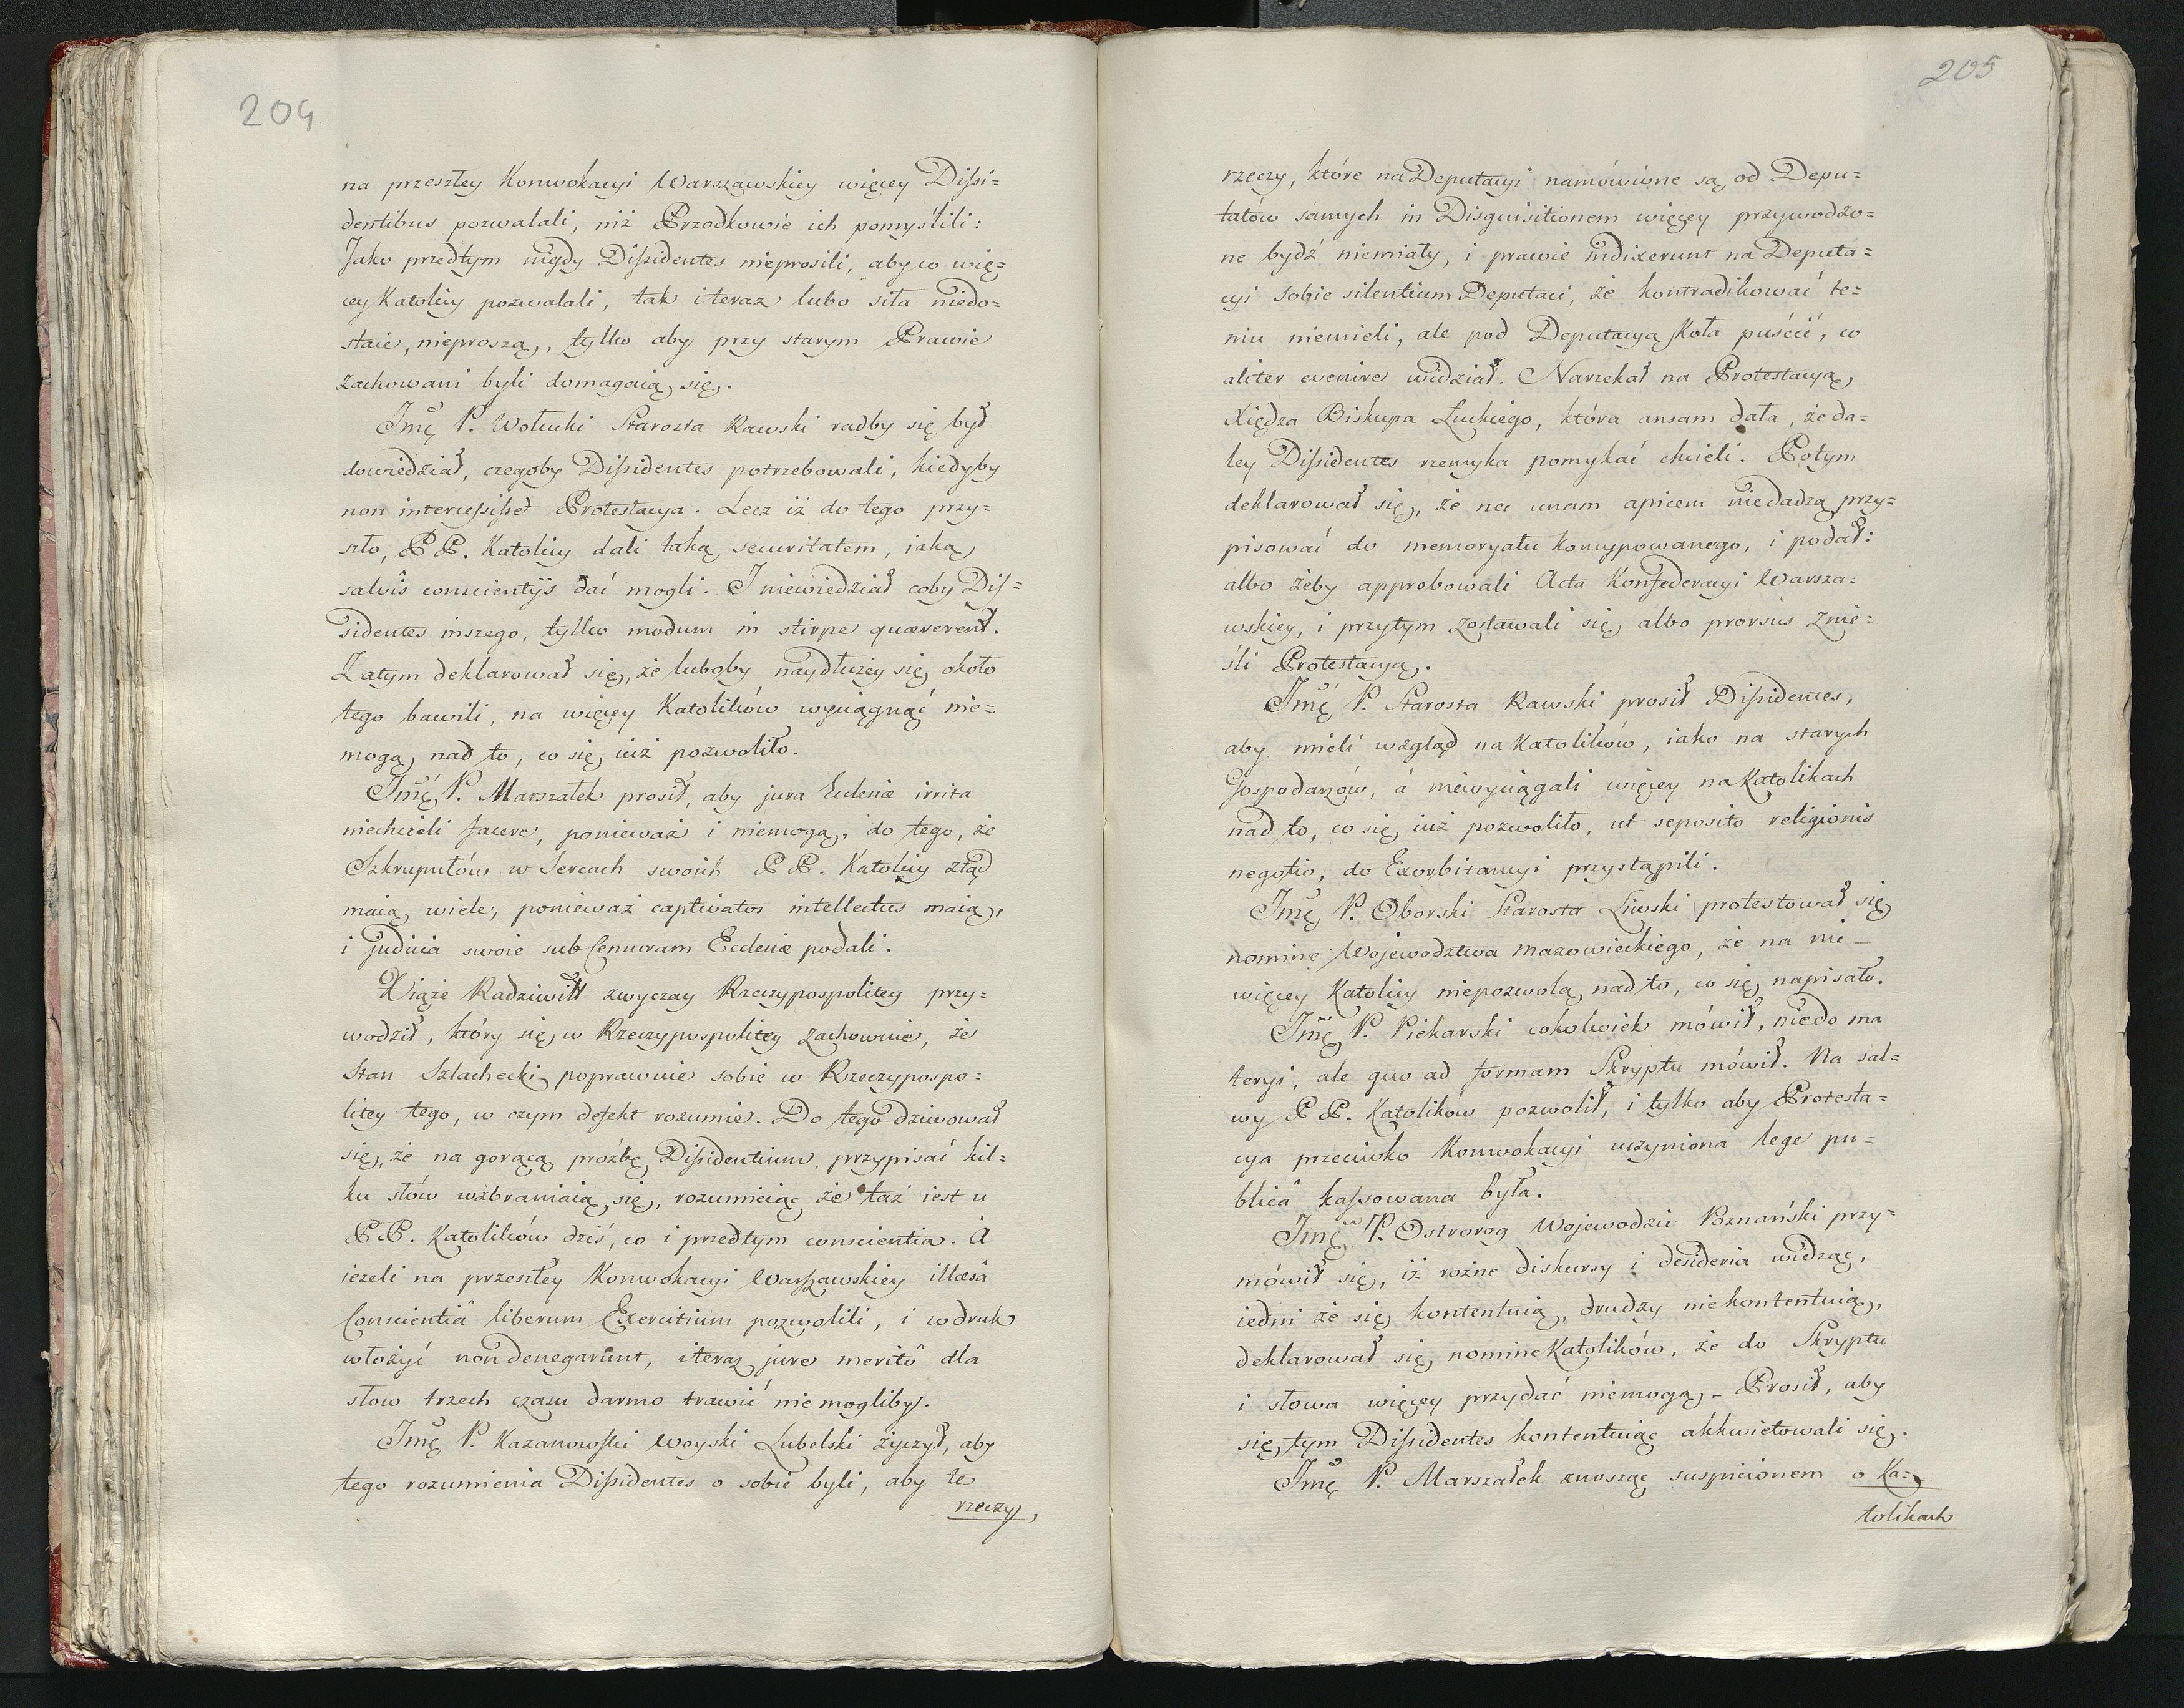 204
na przeszłey Konwokacyi Warszawskiey więcey Dissi=
dentibus pozwalali, niż Przodkowie ich pomyślili:
Jako przedtym nigdy Dissidentes nieprosili, aby co wię=
cey Katolicy pozwalali, tak i teraz lubo siła niedo=
staie, nieproszą, tylko aby przy starym Prawie
zachowani byli domagaią się.
Jmć P. Wołucki Starosta Rawski radby się był
dowiedział, czegoby Dissidentes potrzebowali, kiedyby
non intercessisset Protestacya. Lecz iż do tego przy=
szło, PP. Katolicy dali taką securitatem, iaką
salvis conscientijs dać mogli. I niewiedział coby Dis=
sidentes inszego, tylko modum in stirpe quærerent.
Zatym deklarował się, że luboby naydłużey się około
tego bawili, na więcey Katolików wyciągnąć nie=
mogą, nad to, co się iuż pozwoliło.
Jmć P. Marszałek prosił, aby jura Eclesiæ irrita
niechcieli facere, ponieważ i niemogą, do tego, że
Szkrupułów w Sercach swoich PP. Katolicy ztąd
maią wiele, ponieważ captivatos intellectus maią,
i judicia swoie sub Censuram Ecclesiæ podali.
Xiąże Radziwiłł zwyczay Rzeczypospolitey przy=
wodził, który się w Rzeczypospolitey zachowuie, że
Stan Szlachecki poprawuie sobie w Rzeczypospo=
litey tego, w czym defekt rozumie. Do tego dziwował
się, że na gorącą proźbę Dissidentium, przypisać kil=
ku słów wzbraniaią się, rozumieiąc że taż iest u
PP. Katolików dziś, co i przedtym conscientia. A
ieżeli na przeszłey Konwokacyi Warszawskiey illæsâ
Conscientiâ liberum Exercitium pozwolili, i w druk
włożyć non denegarunt, i teraz jure meritô dla
słow trzech czasu darmo trawić niemogliby.
Jmć P. Kazanowski Woyski Lubelski życzył, aby
tego rozumienia Dissidentes o sobie byli, aby te
rzeczy,
205
rzeczy, które na Deputacyi namówione są, od Depu=
tatów samych in Disquisitionem więcey przywodzo=
ne bydź niemiały, i prawie indixerunt na Deputa=
cyi sobie silentium Deputaci, że kontradikować te=
mu niemieli, ale pod Deputacyą Koła puścić, co
aliter evenire widział. Narzekał na Protestacyą,
Xiędza Biskupa Łuckiego, która ansam dała, że da=
ley Dissidentes rzemyka pomykać chcieli. Potym
deklarował się, że nec unam apicem niedadzą przy=
pisować do memoryału koncypowanego, i podał:
albo żeby approbowali Acta Konfederacyi Warsza=
wskiey, i przytym zostawali się, albo prorsus znie=
śli Protestacyą.
Jmć P. Starosta Rawski prosił Dissidentes,
aby mieli wzgląd na Katolików, iako na starych
Gospodarzów, á niewyciągali więcey na Katolikach
nad to, co się iuż pozwoliło, ut seposito religionis
negotio, do Exorbitancyi przystąpili.
Jmć P. Oborski Starosta Liwski protestował się
nomine Wojewodztwa Mazowieckiego, że na nic
więcey Katolicy niepozwolą, nad to, co się napisało.
Jmć P. Piekarski cokolwiek mówił, nie do ma
teryi, ale quo ad formam Skryptu mówił. Na sal=
wy PP. Katolików pozwolił, i tylko aby Protesta=
cya przeciwko Konwokacyi uczyniona lege pu=
blicâ kassowana była.
Jmć P. Ostrorog Wojewodzic Poznański przy=
mówił się, iż rożne diskursy i desideria widząc,
iedni że się kontentuią, drudzy niekontentuią,
deklarował się nomine Katolików, że do Skryptu
i słowa więcey przydać niemogą. Prosił, aby
się tym Dissidentes kontentuiąc akkwietowali się.
Jmć P. Marszałek znosząc suspicionem o Ka=
tolikach